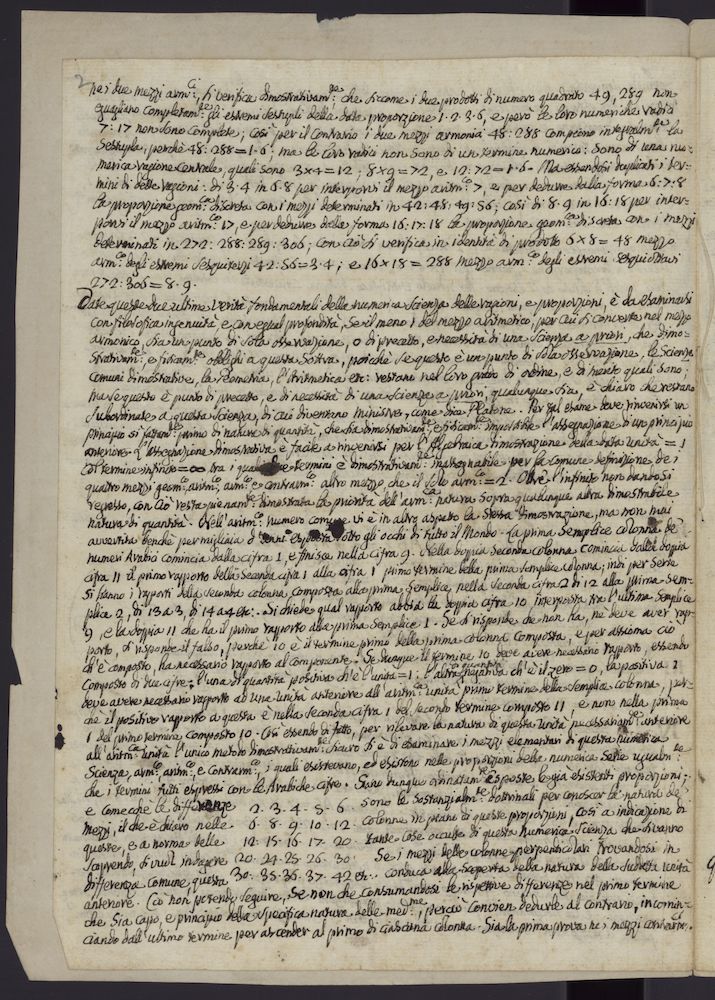 2
ne i due mezzi arm:ci, si verifica dimostrativam:te che siccome i due prodotti di numero quadrato 49, 289 non
eguagliano completam:te gli estremi sestupli della data proporzione 1·2·3·6, e però le loro numeriche radici
7:17 non sono comprese; così per il contrario i due mezzi armonici 48:288 compiono integralm:te la
sestupla, perchè 48:288=1·6; ma le loro radici non sono di un termine numerico: sono di una nu=
merica ragione centrale, quali sono 3x4=12; 8x9=72, e 12:72=1·6. Ma essendosi duplicati i ter=
mini di dette ragioni: di 3·4 in 6·8 per interporvi il mezzo aritm:co 7, e per dedurre dalla forma 6:7:8
la proporzione geom:ca discreta con i mezzi determinati in 42:48:49:56; così di 8·9 in 16:18 per inter=
porvi il mezzo aritm:co 17, e per dedurre dalla forma 16:17:18 la proporzione geom:ca discreta con i mezzi
determinati in 272:288:289:306; con ciò si verifica in identità di prodotto 6x8=48 mezzo
arm:co degli estremi sesquiterzi 42:56=3·4; e 16x18=288 mezzo arm:co degli estremi sesquiottavi
272:306=8·9.
Date queste due ultime verità fondamentali della numerica scienza delle ragioni, e proporzioni, è da esaminarsi
con filosofica ingenuità, e con egual profondità, se il meno 1 del mezzo aritmetico, per cui si converte nel mezzo
armonico, sia un punto di sola osservazione, o di precetto, e necessità di una scienza a priori, che dimo=
strativam:te, e fisicam:te obblighi a questa sottraz., poichè se questo è un punto di sola osservazione, le scienze
comuni dimostrative, la Geometria, l'Aritmetica etc: restano nel loro grado di ordine, e di merito quali sono;
ma se questo è punto di precetto, e di necessità di una scienza a priori, qualunque sia, è chiaro che restano
subordinate a questa scienza, di cui diventano ministre, come dice Platone. Per tal esame deve rinvenirsi un
principio si fattam:te primo di natura di quantità, che sia dimostrativam:te, e fisicam:te impossibile l'assegnazione di un principio
anteriore. L'assegnazione dimostrativa è facile a rinvenirsi per l'Algebraica dimostrazione della data unità =1
col termine infinito=∞ tra i quali due termini è dimostrativam:te inassegnabile per la comune definizione de i
quattro mezzi geom:co, aritm:co, arm:co e contrarm:co altro mezzo, che il solo arm:co=2. Oltre l'infinito non dandosi
regresso, con ciò resta pienam:te dimostrata la priorità dell'arm:ca natura sopra qualunque altra dimostrabile
natura di quantità. Nell'aritm:co numero comune vi è in altro aspetto la stessa dimostrazione, ma non mai
avvertita benchè per migliaia d'anni esposta sotto gli occhi di tutto il Mondo. La prima semplice colonna de
numeri Arabici comincia dalla cifra 1, e finisce nella cifra 9. Nella doppia seconda colonna comincia dalla doppia
cifra 11 il primo rapporto della seconda cifra 1 alla cifra 1 primo termine della prima semplice colonna; indi per serie
si hanno i rapporti della seconda colonna composta alla prima semplice, nella seconda cifra 2 di 12 alla prima sem=
plice 2, di 13 a 3, di 14 a 4 etc. Si chiede qual rapporto abbia la doppia cifra 10 interposta tra l'ultima semplice
9, e la doppia 11 che ha il primo rapporto alla prima semplice 1. Se si risponde che non ha, nè deve aver rap=
porto, si risponde il falso, perchè 10 è il termine primo della prima colonna composta, e per assioma ciò
ch'è composto, ha necessario rapporto al componente. Se dunque il termine 10 deve avere necessario rapporto, essendo
composto di due cifre; l'una di quantità positiva ch'è l'unità=1; l'altra di quantità negativa ch'è il zero=0, la positiva 1
deve avere necessario rapporto ad una unità anteriore all'aritm:ca unità primo termine della semplice colonna, per=
chè il positivo rapporto a questa è nella seconda cifra 1 del secondo termine composto 11, e non nella prima
1 del primo termine composto 10. Così essendo di fatto, per rilevare la natura di questa unità necessariam:te anteriore
all'aritm:ca unità l'unico metodo dimostrativam:te sicuro si è di esaminare i mezzi elementari di questa numerica
scienza, arm:co, aritm:co, e contrarm:co, i quali esistevano, ed esistono nelle proporzioni della numerica serie egualm:te
che i termini tutti espressi con le Arabiche cifre. Siano dunque ordinatam:te esposte le già esistenti proporzioni;
e comecchè le differenze 2·3·4·5·6· sono le sostanzialm:te dottrinali per conoscer la natura de
mezzi, il che è chiaro nelle 6·8·9·10·12· colonne in piano di queste proporzioni, così a indicazione di
queste, e a norma delle 12·15·16·17·20· tante cose occulte di questa numerica scienza che si vanno
scoprendo, si vuol indagare 20·24·25·26·30· Se i mezzi delle colonne perpendicolari trovandosi in
differenza comune, questa 30·35·36·37·42 etc. conduca alla scoperta della natura della sudetta unità
anteriore. Ciò non potendo seguire, se non che consumandosi le rispettive differenze nel primo termine
che sia capo, e principio della specifica natura delle med:me, perciò convien dedurle al contrario, incomin=
ciando dall'ultimo termine per ascender al primo di ciascuna colonna. Sia la prima prova ne i mezzi contrarm:ci